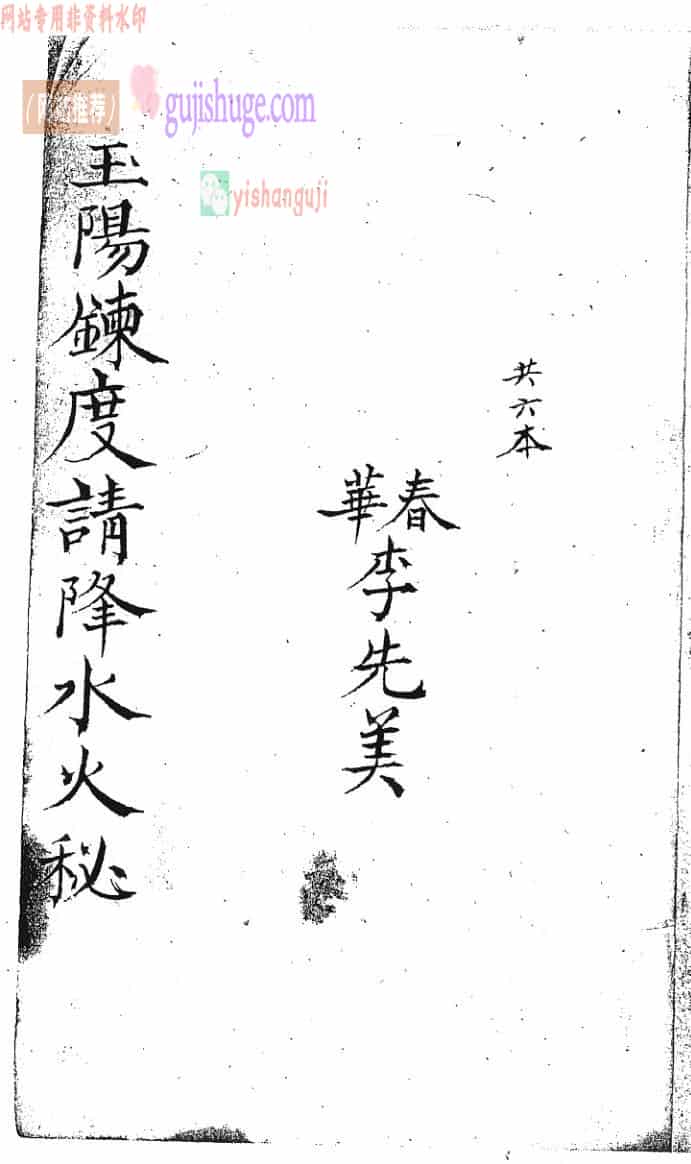 网站专用非资料水印
gujishuge.com
yishanguji
共六本
春華李先美
玉陽鍊度請降水火秘